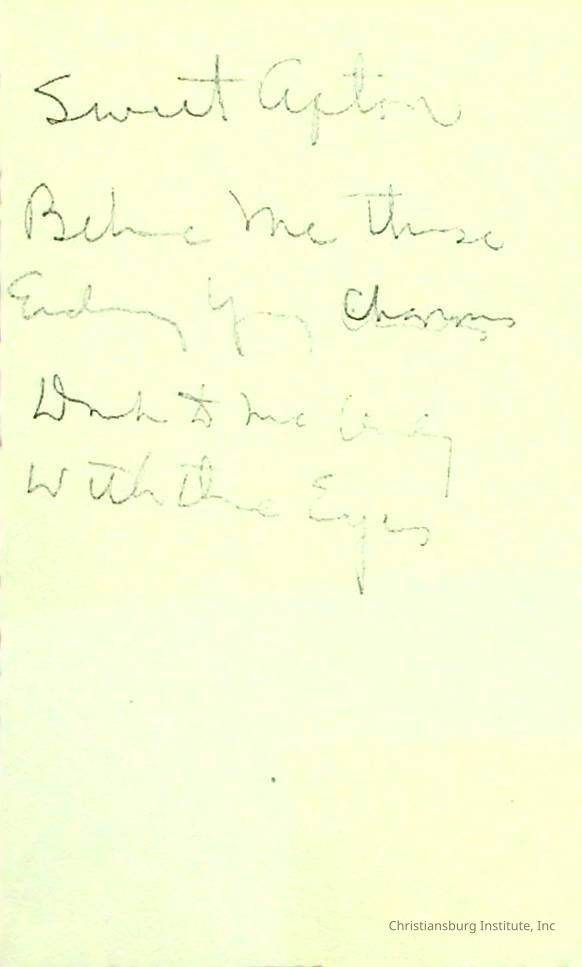 Sweet Afton
Believe Me Those
Endearing Young Charms
Drink to me Only
With thine Eyes
Christiansburg Institute, Inc